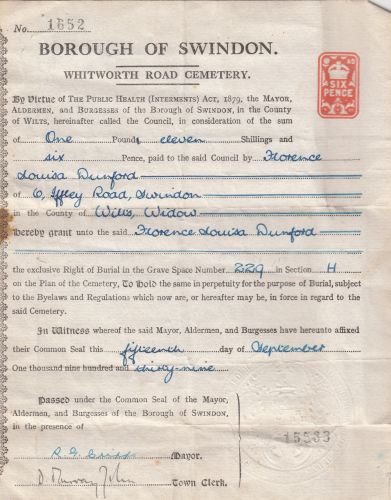 No. 1652
BOROUGH OF SWINDON.
WHITWORTH ROAD CEMETERY.
SIX
PENCE
By Virtue of THE PUBLIC HEALTH (INTERMENTS) ACT, 1879, the MAYOR,
ALDERMEN, and BURGESSES of the BOROUGH OF SWINDON, in the COUNTY
of WILTS, hereinafter called the Council, in consideration of the sum
of One Pound, eleven Shillings and
six Pence, paid to the said Council by Florence
Louisa Dunford
of 6, Iffley Road, Swindon
in the County of Wilts, Widow
hereby grant unto the said Florence Louisa Dunford
the exclusive Right of Burial in the Grave Space Number 229 in Section H
on the Plan of the Cemetery, To hold the same in perpetuity for the purpose of Burial, subject
to the Byelaws and Regulations which now are, or hereafter may be, in force in regard to the
said Cemetery.
In Witness whereof the said Mayor, Aldermen, and Burgesses have hereunto affixed
their Common Seal this fifteenth day of September
One thousand nine hundred and thirty-nine
Passed under the Common Seal of the Mayor,
Aldermen, and Burgesses of the Borough of SWINDON,
in the presence of
-15533
Mayor.
D. Murray John Town Clerk.